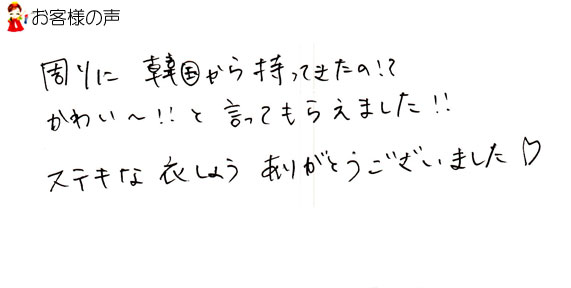 お客様の声
周りに 韓国から持ってきたの!?
かわい〜!! と 言ってもらえました!!
ステキな 衣しょう ありがとうございました♡